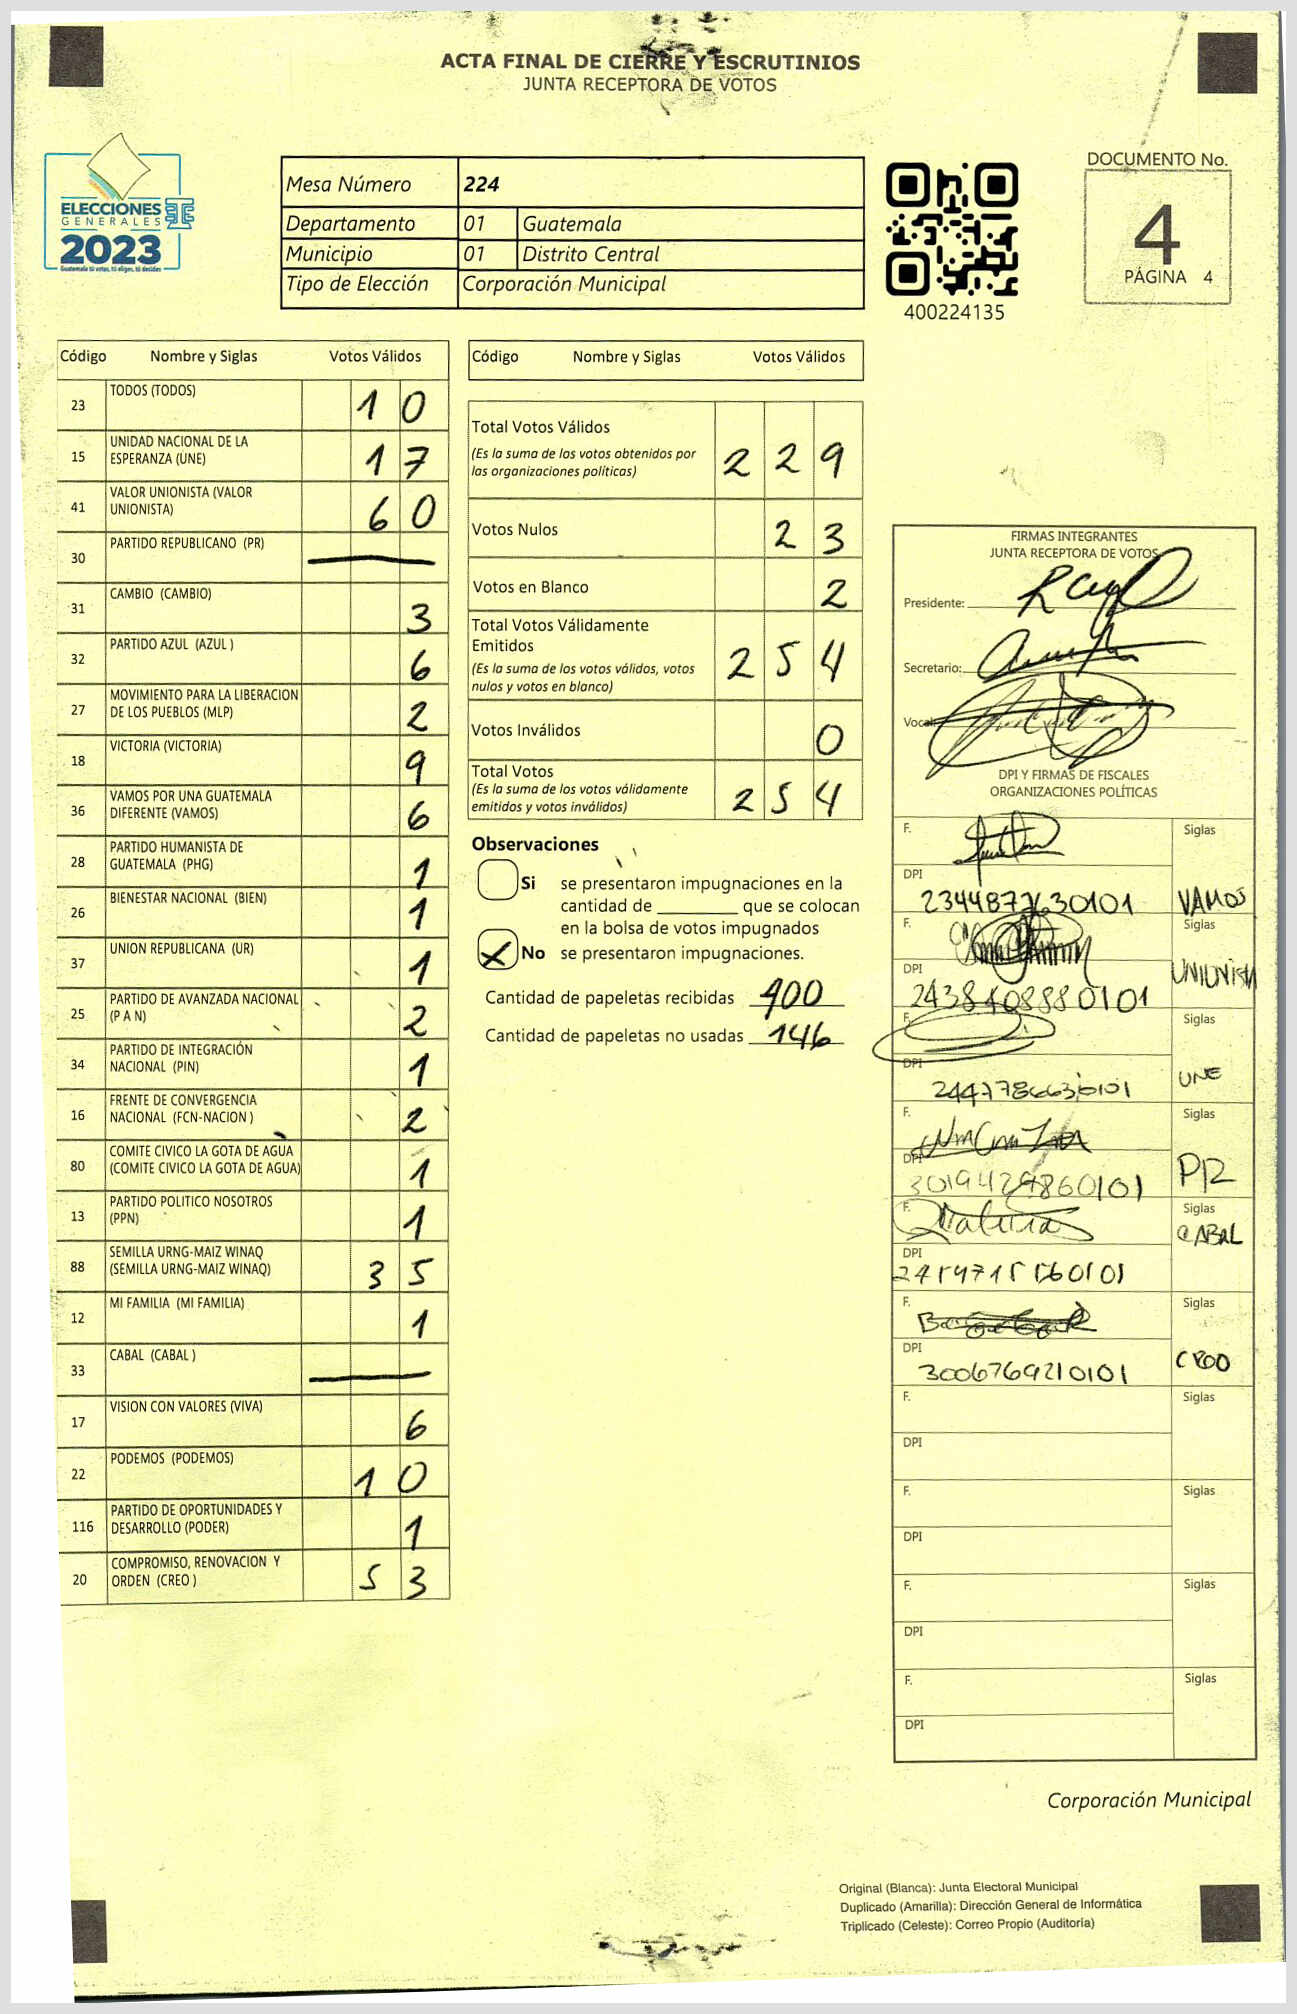 ACTA FINAL DE CIERRE Y ESCRUTINIOS
JUNTA RECEPTORA DE VOTOS
ELECCIONES
GENERALES
2023
Guatemala tú votas, tú eliges, tú decides
Mesa Número 224
Departamento 01 Guatemala
Municipio 01 Distrito Central
Tipo de Elección Corporación Municipal
400224135
DOCUMENTO No.
4
PÁGINA 4
Código Nombre y Siglas Votos Válidos
23 TODOS (TODOS) 10
15 UNIDAD NACIONAL DE LA
ESPERANZA (UNE) 17
41 VALOR UNIONISTA (VALOR
UNIONISTA) 60
30 PARTIDO REPUBLICANO (PR)
31 CAMBIO (CAMBIO) 3
32 PARTIDO AZUL (AZUL ) 6
27 MOVIMIENTO PARA LA LIBERACION
DE LOS PUEBLOS (MLP) 2
18 VICTORIA (VICTORIA) 9
36 VAMOS POR UNA GUATEMALA
DIFERENTE (VAMOS) 6
28 PARTIDO HUMANISTA DE
GUATEMALA (PHG) 1
26 BIENESTAR NACIONAL (BIEN) 1
37 UNION REPUBLICANA (UR) 1
25 PARTIDO DE AVANZADA NACIONAL
(P A N) 2
34 PARTIDO DE INTEGRACIÓN
NACIONAL (PIN) 1
16 FRENTE DE CONVERGENCIA
NACIONAL (FCN-NACION ) 2
80 COMITE CIVICO LA GOTA DE AGUA
(COMITE CIVICO LA GOTA DE AGUA) 1
13 PARTIDO POLITICO NOSOTROS
(PPN) 1
88 SEMILLA URNG-MAIZ WINAQ
(SEMILLA URNG-MAIZ WINAQ) 35
12 MI FAMILIA (MI FAMILIA) 1
33 CABAL (CABAL )
17 VISION CON VALORES (VIVA) 6
22 PODEMOS (PODEMOS) 10
116 PARTIDO DE OPORTUNIDADES Y
DESARROLLO (PODER) 1
20 COMPROMISO, RENOVACION Y
ORDEN (CREO ) 53
Código Nombre y Siglas Votos Válidos
Total Votos Válidos
(Es la suma de los votos obtenidos por
las organizaciones políticas) 229
Votos Nulos 23
Votos en Blanco 2
Total Votos Válidamente
Emitidos
(Es la suma de los votos válidos, votos
nulos y votos en blanco) 254
Votos Inválidos 0
Total Votos
(Es la suma de los votos válidamente
emitidos y votos inválidos) 254
Observaciones
Si se presentaron impugnaciones en la
cantidad de ________ que se colocan
en la bolsa de votos impugnados
X No se presentaron impugnaciones.
Cantidad de papeletas recibidas 400
Cantidad de papeletas no usadas 146
FIRMAS INTEGRANTES
JUNTA RECEPTORA DE VOTOS
Presidente:
Secretario:
Vocal:
DPI Y FIRMAS DE FISCALES
ORGANIZACIONES POLÍTICAS
F. Siglas
DPI
2344877630101 VAMOS
F. Siglas
DPI
2438408880101 UNIONISTA
F. Siglas
DPI
2447786630101 UNE
F. Siglas
DPI
3019429860101 PR
F. Siglas
CABAL
DPI
F. Siglas
DPI
3006769210101 CREO
F. Siglas
DPI
F. Siglas
DPI
F. Siglas
DPI
F. Siglas
DPI
Corporación Municipal
Original (Blanca): Junta Electoral Municipal
Duplicado (Amarilla): Dirección General de Informática
Triplicado (Celeste): Correo Propio (Auditoría)